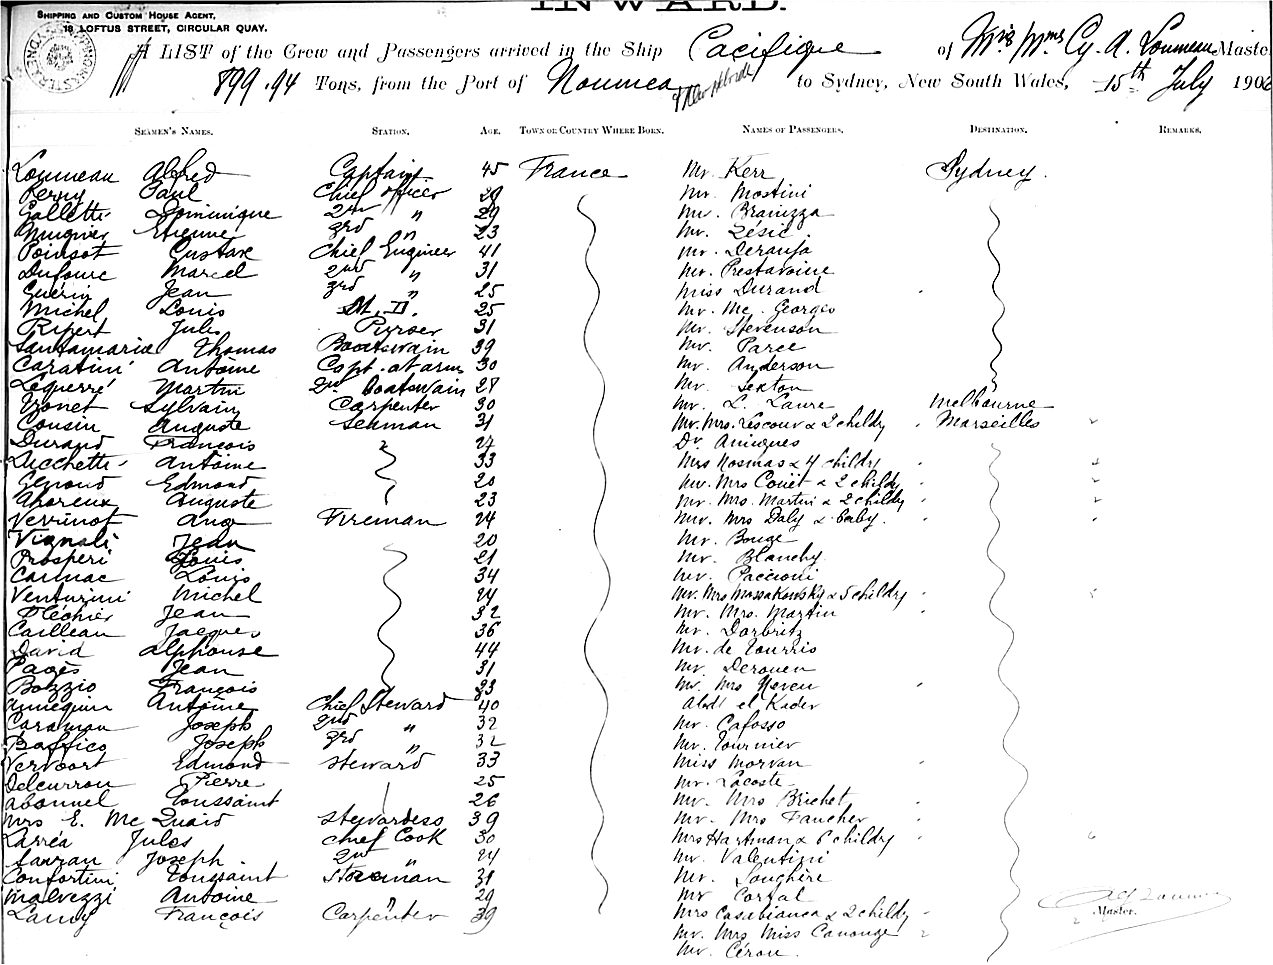 INWARD.
SHIPPING AND CUSTOM HOUSE AGENT,
18 LOFTUS STREET, CIRCULAR QUAY.
A LIST of the Crew and Passengers arrived in the Ship Pacifique of Master
899.94 Tons, from the Port of Noumea & New Hebrides to Sydney, New South Wales, 15th July 1902
SEAMEN'S NAMES. STATION. AGE. TOWN OR COUNTRY WHERE BORN. NAMES OF PASSENGERS. DESTINATION. REMARKS.
Loumeau Alfred Captain 45 France Mr. Kerr Sydney.
Ferry Paul Chief Officer 29 Mr. Mostini
Galletti Dominique 2nd " 29 Mr. Brainzza
Muguier Etienne 3rd " 23 Mr. Zésic
Poinsot Gustave Chief Engineer 41 Mr.
Dufour Marcel 2nd " 31 Mr. Prestavoine
Guérin Jean 3rd " 25 Miss Durand
Michel Louis M. D. 25 Mr. Mc. Georges
Ripert Jules Purser 31 Mr. Stevenson
Santamaria Thomas Boatswain 39 Mr. Parce
Caratini Antoine Capt. at arms 30 Mr. Anderson
Lequerré Martin 2nd Boatswain 28 Mr. Sexton
Sylvain Carpenter 30 Mr. L. Laure Melbourne
Cousin Auguste Seaman 31 Mr. Mrs. Lescour & 2 childr Marseilles
Durand François 24 Dr.
Lucchetti Antoine 33 Mrs Nosmas & 4 childr
Edmond 20 Mr. Mrs Couët & 2 childr
Auguste 23 Mr. Mrs. Martin & 2 childr
Verrinot Aug Fireman 24 Mr. Mrs Daly & baby.
Vignali Jean 20 Mr. Bouge
Prosperi Louis 21 Mr. Blanchy
Carinac Louis 34 Mr. Paccioni
Venturini Michel 24 Mr. Mrs Massakowsky & 5 childr
Fléchier Jean 32 Mr. Mrs. Martin
Cailleau Jacques 36 Mr. Dorbritz
David Alphonse 44 Mr. de Tourris
Pagès Jean 31 Mr. Derouen
Bozzio François 23 Mr. Mrs Neveu
Annequin Antoine Chief Steward 40 Abdl el Kader
Caraman Joseph 2nd " 32 Mr. Cafosso
Baffico Joseph 3rd " 32 Mr. Tournier
Vervoort Edmond Steward 33 Miss Morvan
Delcurrou Pierre 25 Mr. Lacoste
Abonnel Toussaint 26 Mr. Mrs Brichet
Mrs E. Mc Quaid Stewardess 39 Mr. Mrs Faucher
Larréa Jules Chief Cook 30 Mrs Hartman & 6 childr 6
Sauzan Joseph 2nd " 24 Mr. Valentini
Confortini Toussaint Storeman 31 Mr. Soughère
Malvezzi Antoine " 29 Mr Corzal
Lamy François Carpenter 39 Mrs Casabianca & 2 childr 2 Master.
Mr. Mrs Miss Canonge
Mr. Cérou.